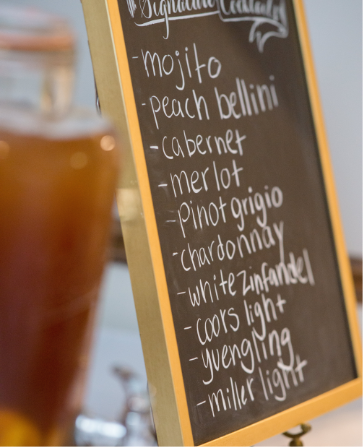 Signature Cocktails
-mojito
-peach bellini
-cabernet
-merlot
-pinot grigio
-chardonnay
-white zinfandel
-coors light
-yuengling
-miller light